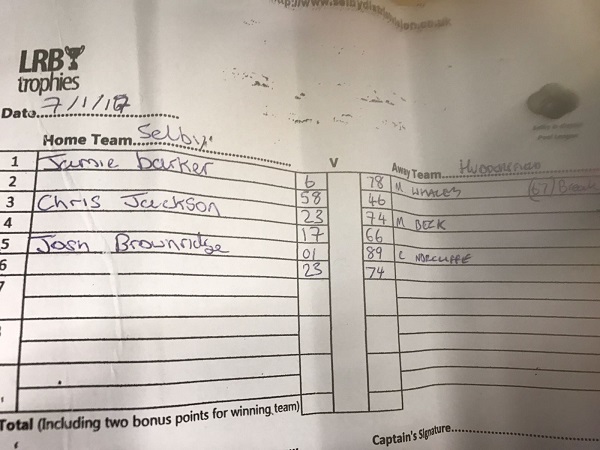 http://www.selbydistrictdivision.co.uk
LRB
trophies
Date 7/1/17
Home Team Selby
V
Away Team Huddersfield
1 Jamie barker
2 6 78 M WHALES (67) Break
3 Chris Jackson 58 46
4 23 74 M BECK
5 Josh Brownridge 17 66
6 01 89 C NORCLIFFE
23 74
Total (Including two bonus points for winning team)
Captain's Signature